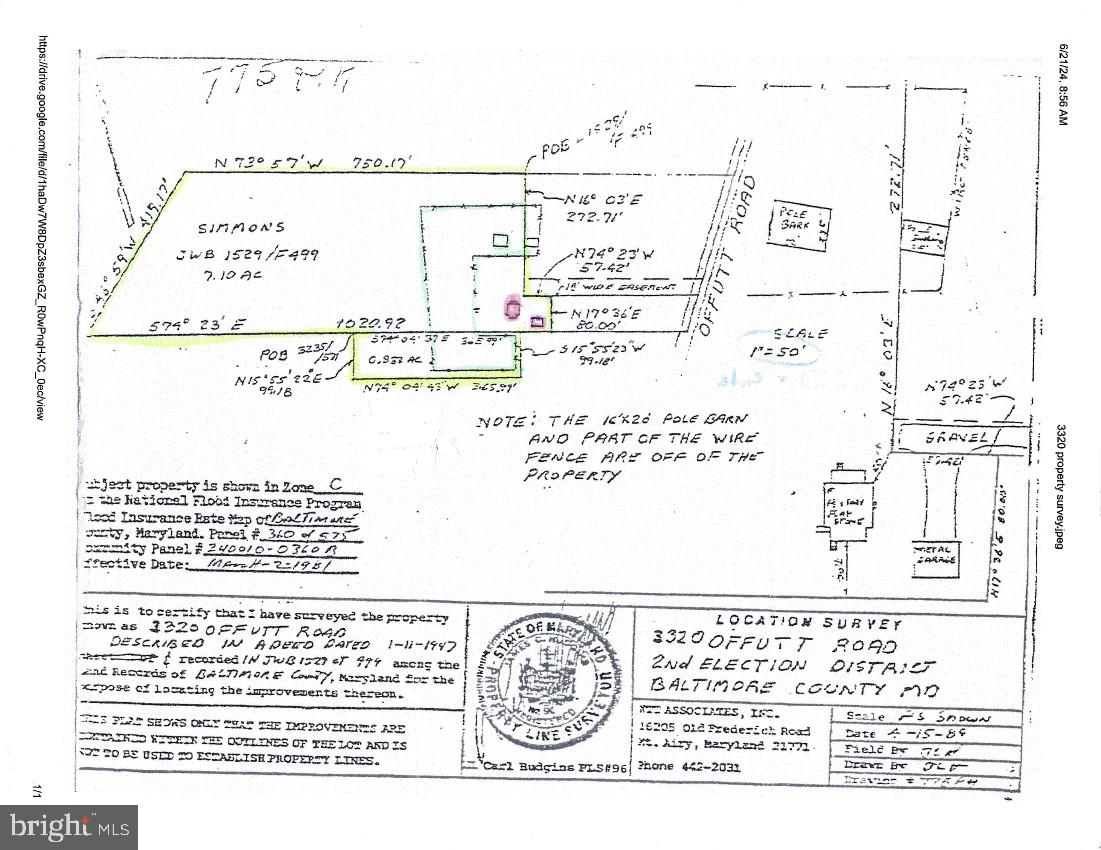 6/21/24, 8:56 AM
3320 property survey.jpeg
https://drive.google.com/file/d/1haDw7W8DpZ3sbexGZ_R0wPnqH-XC_0ec/view
1/1
N 73° 57' W 750.17'
POB
N16° 03' E
272.71'
SIMMONS
JWB 1529/F499
7.10 AC
N74° 23' W
57.42'
WIDE EASEMENT
N17° 36 E
80.00'
574° 23' E 1020.92
POB 3235/
N15° 55' 22" E
99.18
0.832 AC
S15° 55' 23" W
99.18'
N74° 04' 43" W 365.99'
OFFUTT ROAD
POLE
BARN
WIRE FENCE
272.71'
N 16° 03' E
SCALE
1"=50'
N74° 23' W
57.42'
GRAVEL
57.42'
METAL
GARAGE
N17° 36' E 80.00'
NOTE: THE 16'X20' POLE BARN
AND PART OF THE WIRE
FENCE ARE OFF OF THE
PROPERTY
ubject property is shown in Zone C
the National Flood Insurance Program
lood Insurance Rate Map of BALTIMORE
ounty, Maryland. Panel # 360 of 575
ommunity Panel # 240010-0360 B
ffective Date: March-2-1981
his is to certify that I have surveyed the property
nown as 3320 OFFUTT ROAD
DESCRIBED IN A DEED DATED 1-11-1947
& recorded IN JWB 1529 at 499 among the
and Records of BALTIMORE County, Maryland for the
urpose of locating the improvements thereon.
HIS PLAT SHOWS ONLY THAT THE IMPROVEMENTS ARE
ONTAINED WITHIN THE OUTLINES OF THE LOT AND IS
NOT TO BE USED TO ESTABLISH PROPERTY LINES.
STATE OF MARYLAND
PROPERTY LINE SURVEYOR
REGISTERED
Carl Hudgins PLS#96
LOCATION SURVEY
3320 OFFUTT ROAD
2ND ELECTION DISTRICT
BALTIMORE COUNTY MD
NTT ASSOCIATES, INC.
16205 Old Frederick Road
Mt. Airy, Maryland 21771
Phone 442-2031
Scale AS SHOWN
Date 4-15-89
Field By
Drawn By
Drawing #
bright MLS